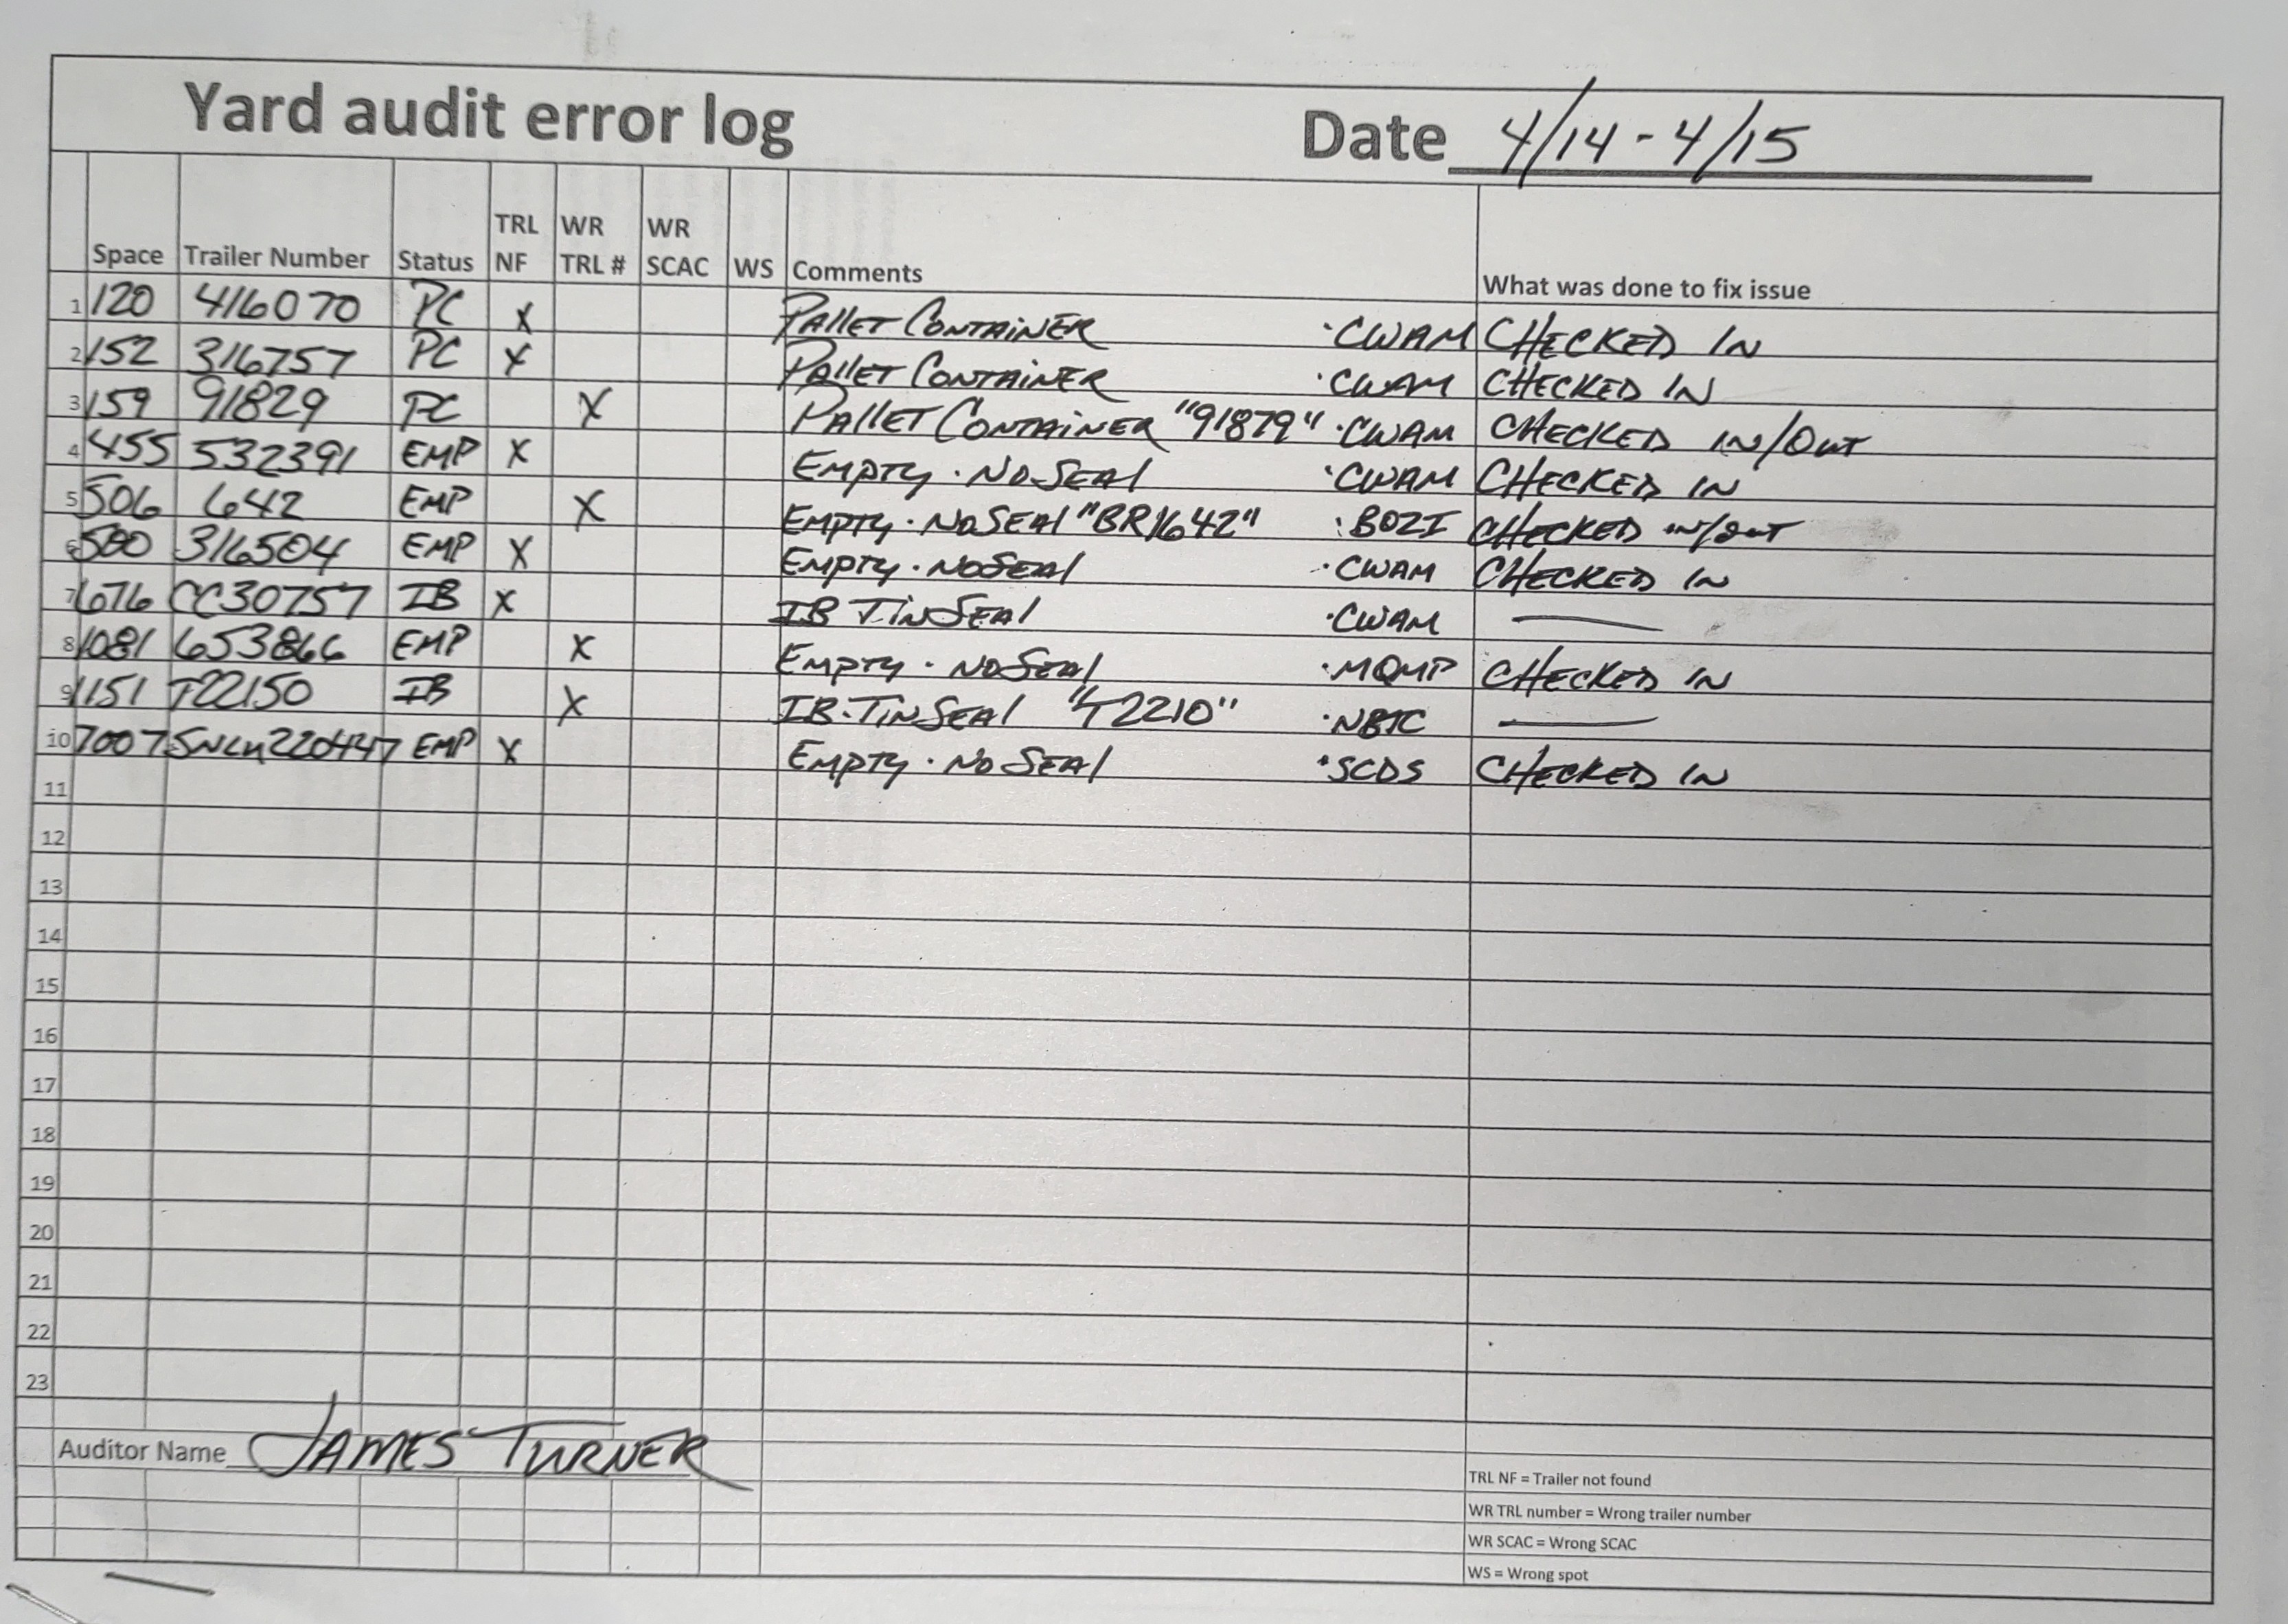 Yard audit error log Date 4/14 - 4/15
Space Trailer Number Status TRL NF WR TRL # WR SCAC WS Comments What was done to fix issue
1 120 416070 PC X PALLET CONTAINER ·CWAM CHECKED IN
2 152 316757 PC X PALLET CONTAINER ·CWAM CHECKED IN
3 159 91829 PC X PALLET CONTAINER "91879" ·CWAM CHECKED IN/OUT
4 455 532391 EMP X EMPTY · NO SEAL ·CWAM CHECKED IN
5 506 642 EMP X EMPTY · NO SEAL "BR1642" ·BOZI CHECKED IN/OUT
6 580 316504 EMP X EMPTY · NO SEAL ·CWAM CHECKED IN
7 676 CC30757 IB X IB TIN SEAL ·CWAM —
8 1081 653866 EMP X EMPTY · NO SEAL ·MQMP CHECKED IN
9 1151 T22150 IB X IB·TIN SEAL "T2210" ·NBTC —
10 7007 EMP X EMPTY · NO SEAL ·SCDS CHECKED IN
11
12
13
14
15
16
17
18
19
20
21
22
23
Auditor Name JAMES TURNER
TRL NF = Trailer not found
WR TRL number = Wrong trailer number
WR SCAC = Wrong SCAC
WS = Wrong spot